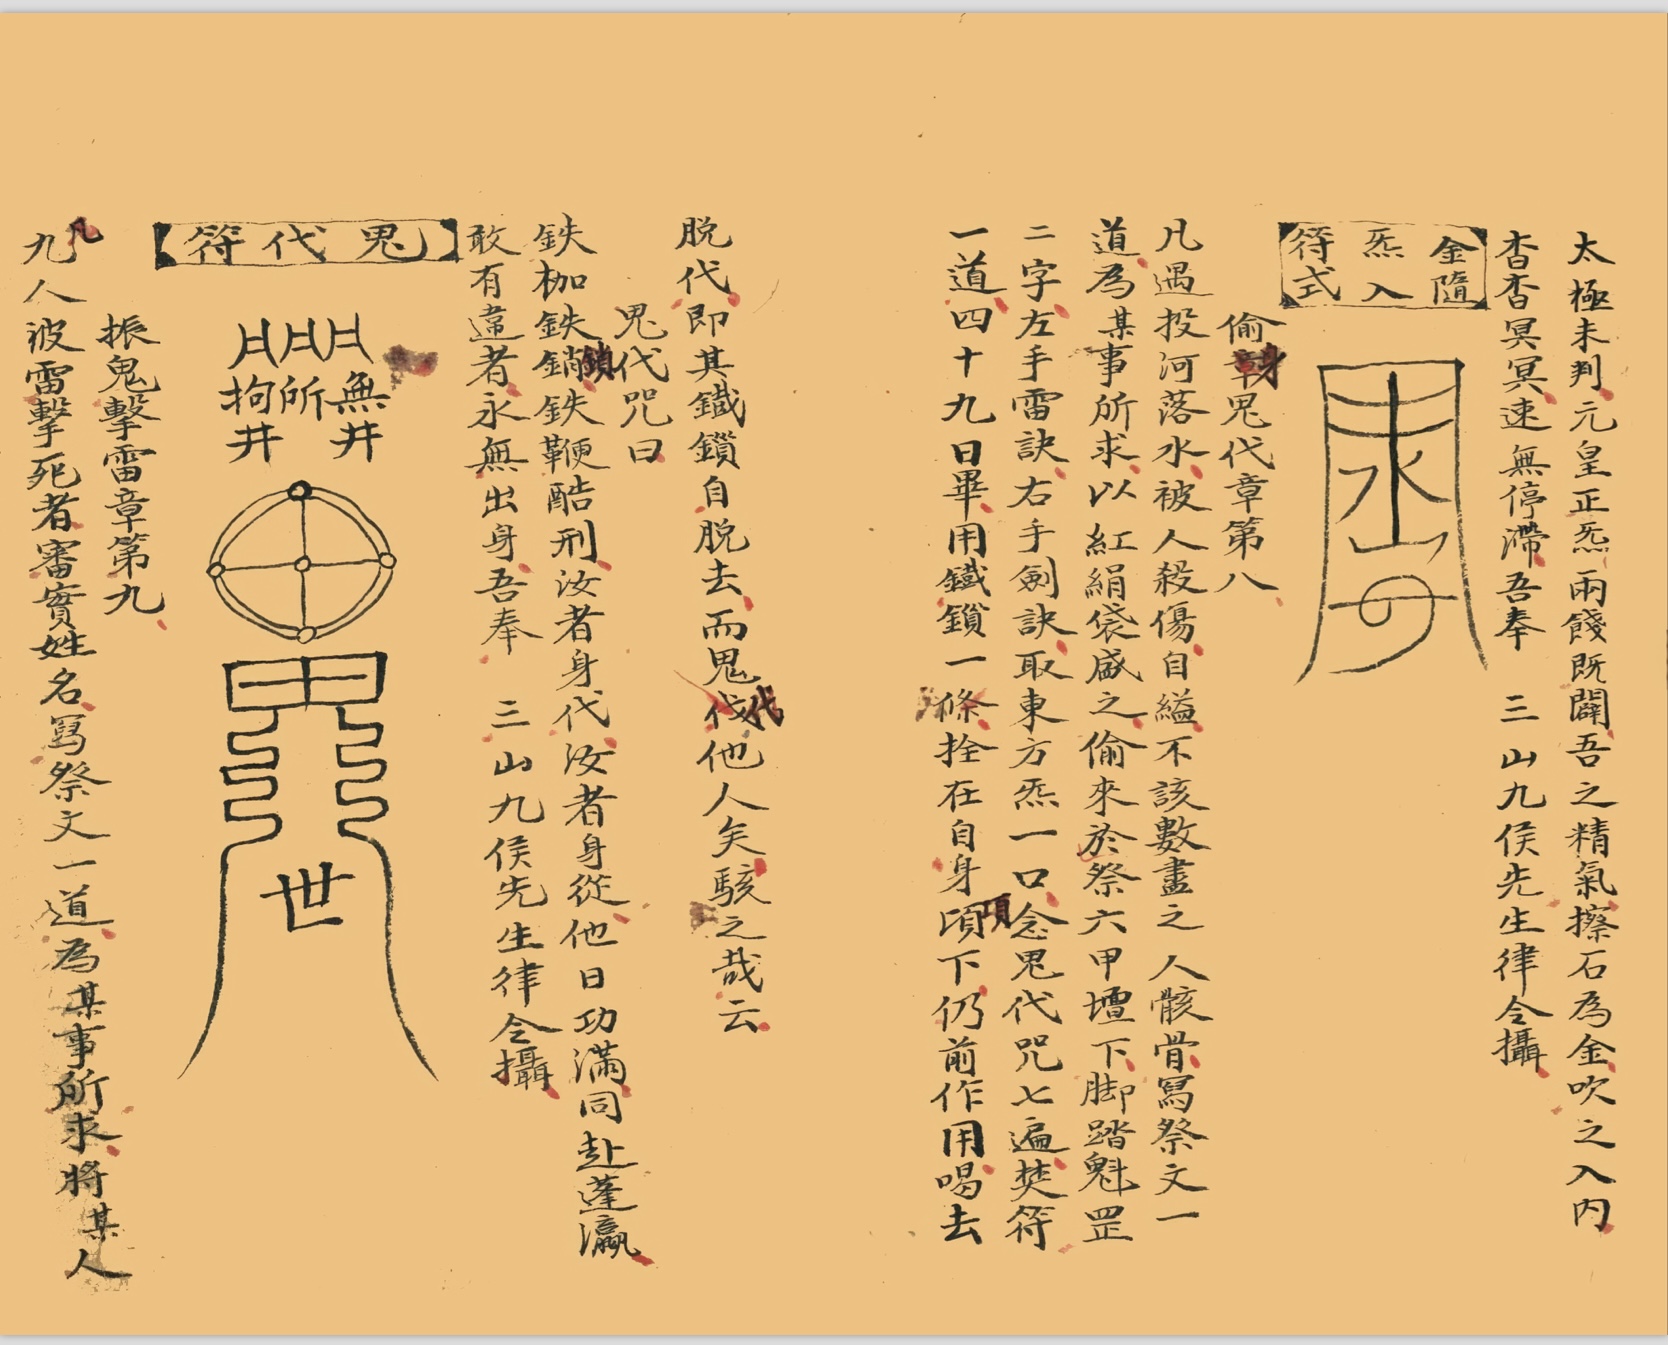 太極未判元皇正炁兩餞既闢吾之精氣擦石為金吹之入內
杳杳冥冥速無停滯吾奉 三山九侯先生律令攝
金隨
炁入
符式
偷身鬼代章第八
凡遇投河落水被人殺傷自縊不該數盡之人骸骨寫祭文一
道為某事所求以紅絹袋盛之偷來於祭六甲壇下脚踏魁罡
二字左手雷訣右手劍訣取東方炁一口念鬼代咒七遍焚符
一道四十九日畢用鐵鎖一條拴在自身項下仍前作用喝去
脱代即其鐵鎖自脱去而鬼代他人矣駭之哉云
鬼代咒曰
鉄枷鉄鎖鉄鞭酷刑汝者身代汝者身從他日功滿同赴蓬瀛
敢有違者永無出身吾奉 三山九侯先生律令攝
鬼代符
無所拘
井井
世
振鬼擊雷章第九
凡人被雷擊死者審實姓名寫祭文一道為某事所求將某人